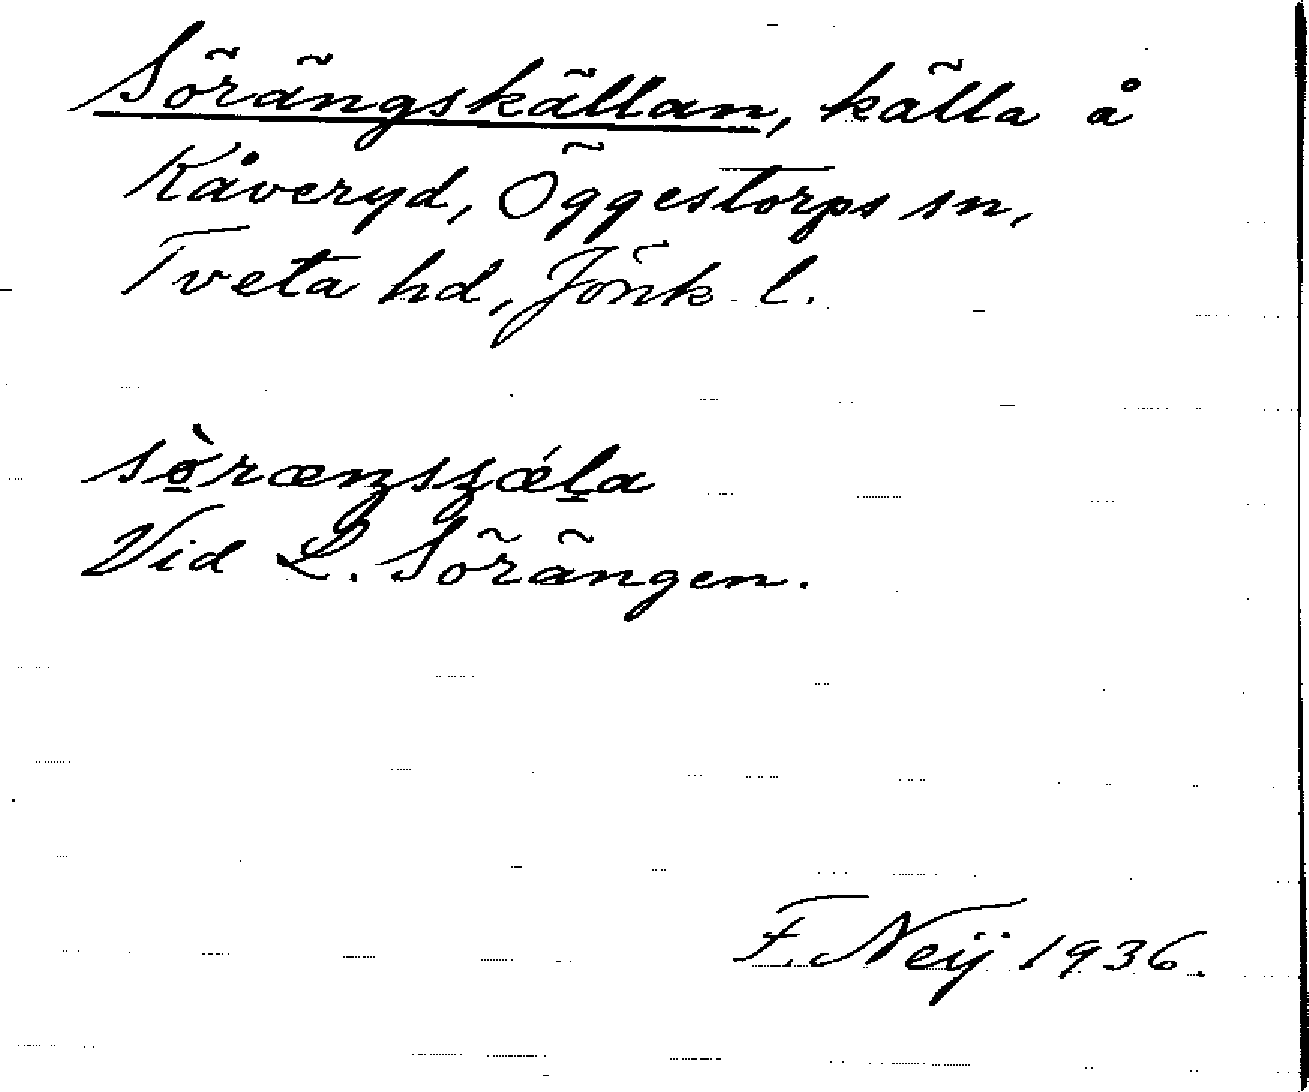 Sörängskällan, källa å
Kåveryd, Öggestorps sn,
Tveta hd, Jönk l.
sö̀rænʒsʒǽla
Vid L. Sörängen.
F. Neij 1936.